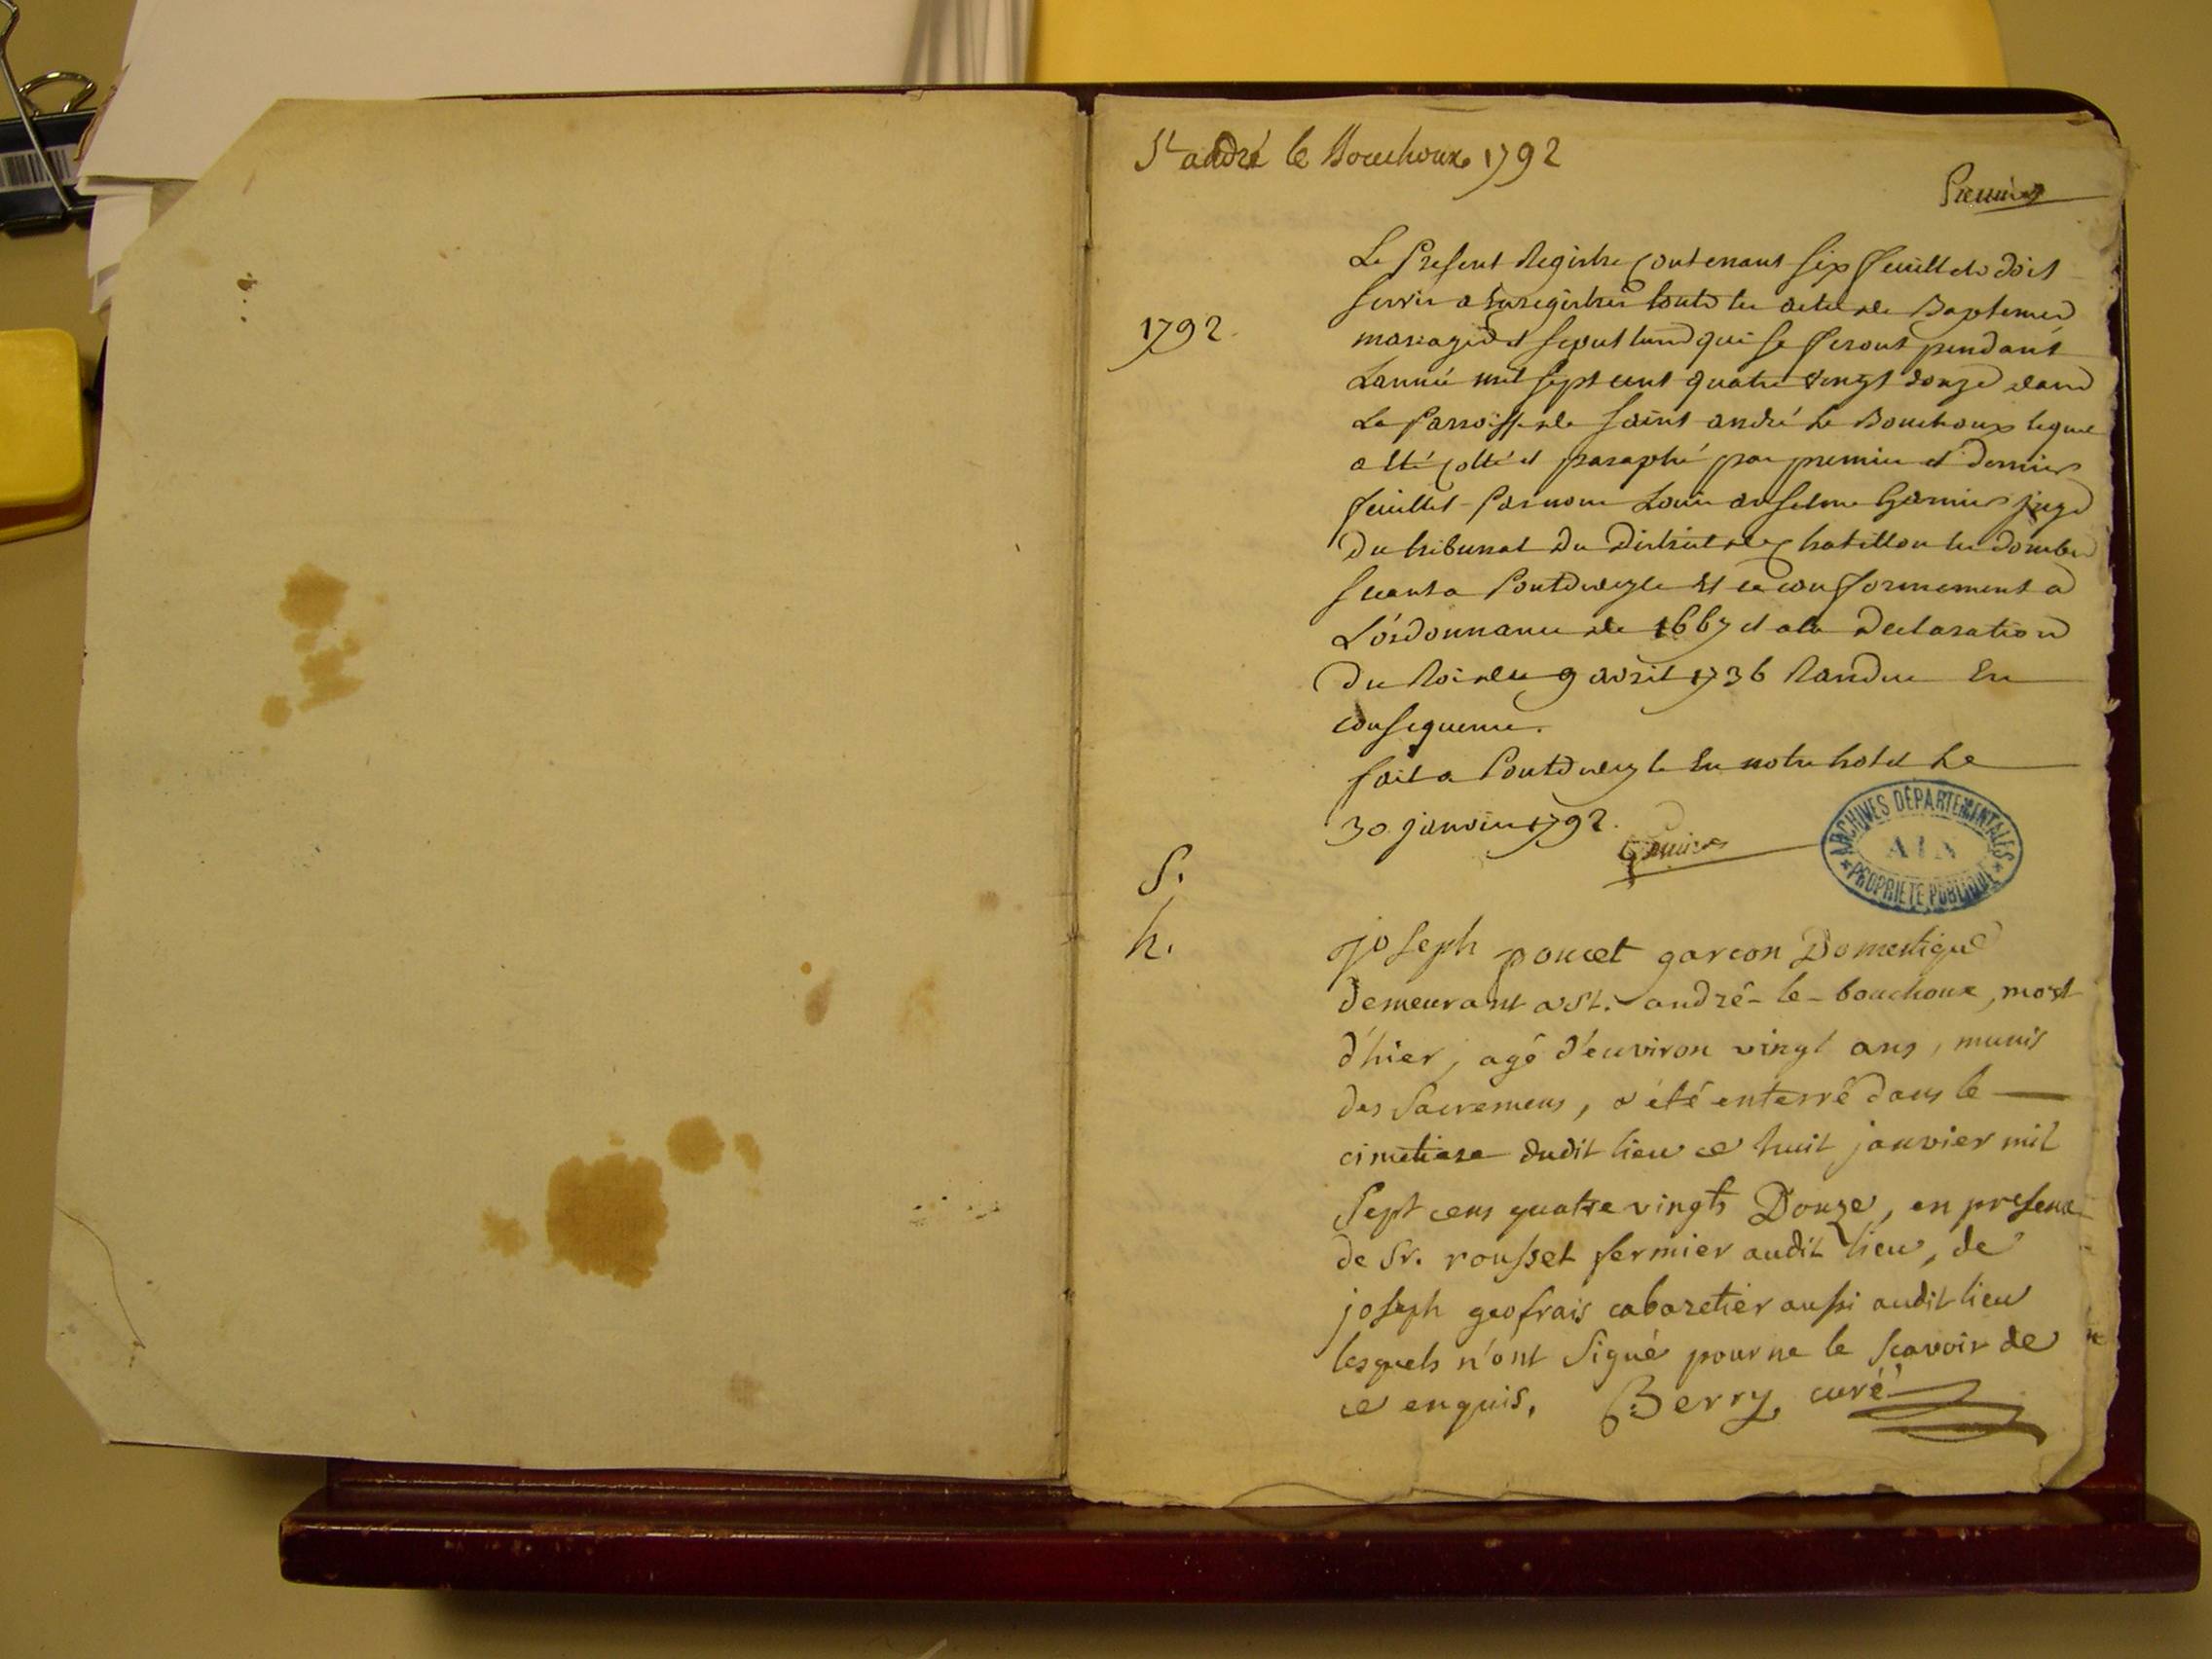 St andré le Bouchoux 1792
Premier
1792.
Le Present Registre contenant six feuillets doit
servir a Enregistrer touts les actes de Baptemes
mariages et sepultures qui se feront pendant
Lannée mil sept cent quatre vingt douze dans
La Parroisse de saint andré le Bouchoux lequel
a Eté cotté et paraphé par premier et dernier
feuillet Par nous Louis anselme Garnier juge
Du tribunal Du District de Chatillon les dombes
seant a Pontdevesle Et ce conformement a
L'ordonnance de 1667 et a la Declaration
Du Roi du 9 avril 1736 Randue En
consequence.
fait a Pontdevesle En notre hotel Le
30 janvier 1792.
Garnier
ARCHIVES DÉPARTEMENTALES
AIN
PROPRIETE PUBLIQUE
S.
h.
joseph poncet garcon Domestique
demeurant a St. andré-le-bouchoux, mort
d'hier, agé d'environ vingt ans, munis
des Sacremens, a été enterré dans le
cimetiere dudit lieu ce huit janvier mil
Sept cens quatre vingts Douze, en presence
de Sr. rousset fermier audit lieu, de
joseph geofrais cabaretier aussi audit lieu
lesquels n'ont Signé pour ne le scavoir de
ce enquis. Berry, curé